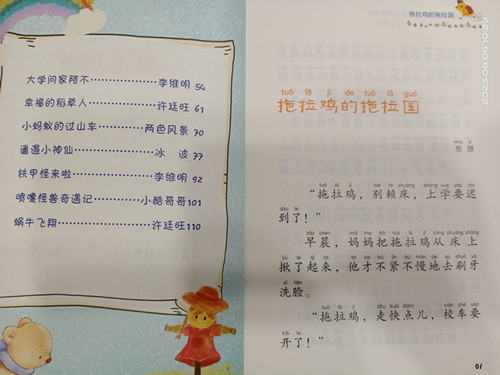 大学问家阿不……………李维明 54
幸福的稻草人……………许廷旺 61
小蚂蚁的过山车………两色风景 70
邋遢小神仙………………冰 波 77
铁甲怪来啦………………李维明 92
喷嚏怪兽奇遇记………小酷哥哥 101
蜗牛飞翔…………………许廷旺 110
拖拉鸡的拖拉国
tuō lā jī de tuō lā guó
拖拉鸡的拖拉国
“拖拉鸡，别赖床，上学要迟
到了！”
早晨，妈妈把拖拉鸡从床上
掀了起来，他才不紧不慢地去刷牙
洗脸。
“拖拉鸡，走快点儿，校车要
开了！”
2023/08/06 10:59